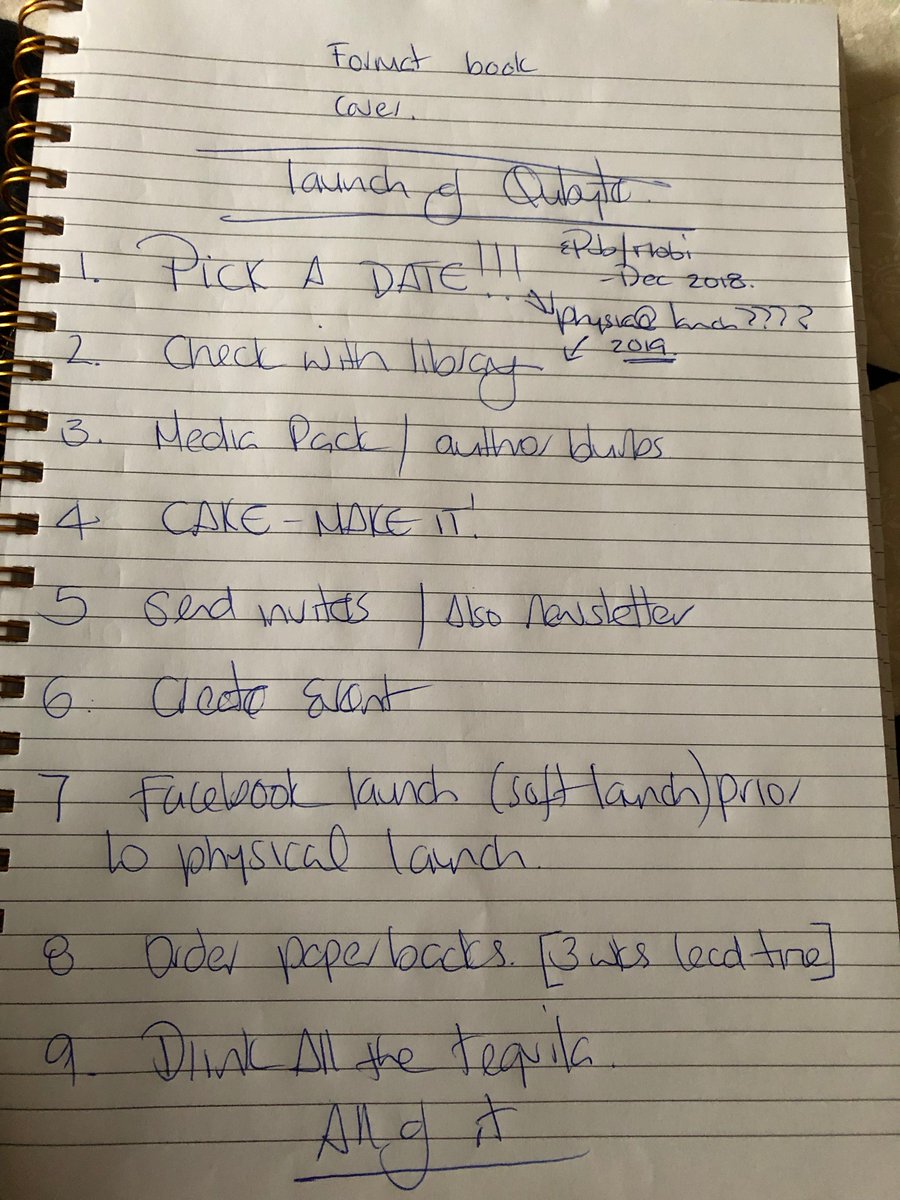 Format book
cover.
Launch of
1. PICK A DATE!!!...
EPub/Mobi
- Dec 2018.
physical launch????
2019
2. Check with library
3. Media Pack / author blurbs
4 CAKE - MAKE IT!
5 Send invites / Also Newsletter
6. Create Event
7 Facebook launch (soft launch) prior
to physical launch.
8 Order paperbacks. [3 wks lead time]
9. Drink All the tequila.
All of it